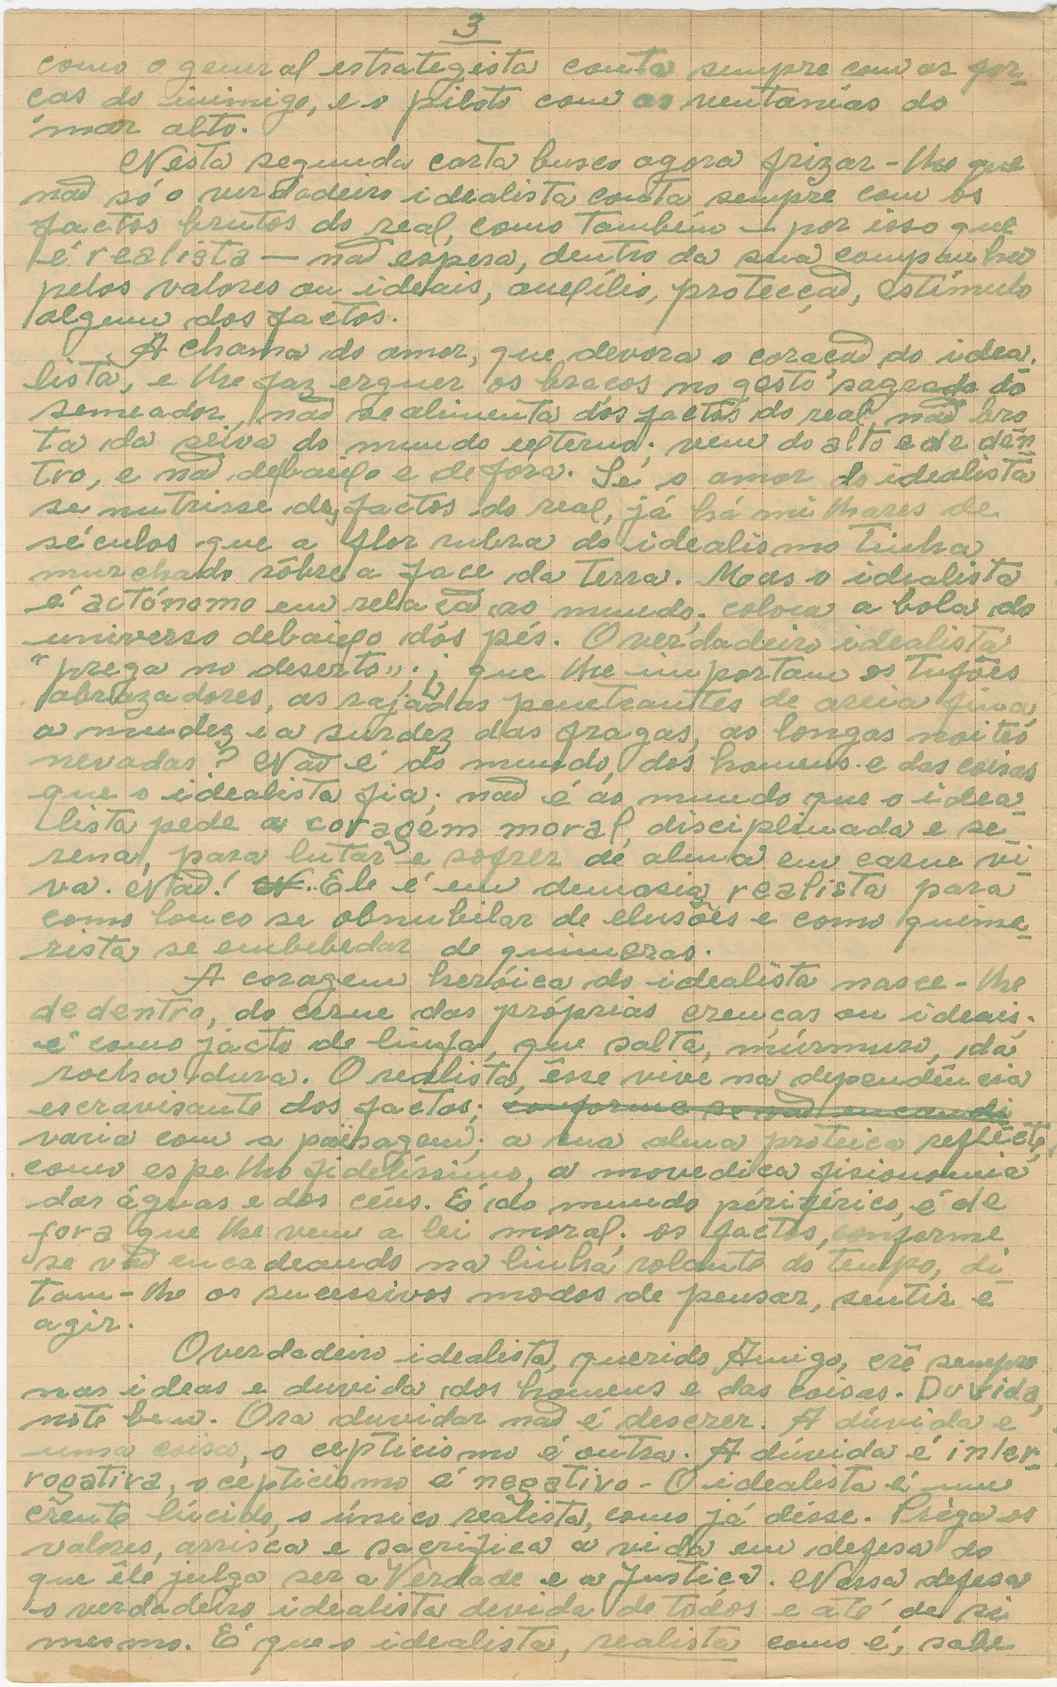 3
como o general estrategista conta sempre com as for-
ças do inimigo, e o piloto com as ventanias do
mar alto.
Nesta segunda carta busco agora frizar-lhe que
não só o verdadeiro idealista conta sempre com os
factos brutos do real, como também — por isso que
é realista — não espera, dentro da sua campanha
pelos valores ou ideais, auxílio, protecção, estímulo
algum dos factos.
A chama do amor, que devora o coração do idea-
lista, e lhe faz erguer os braços no gesto sagrado do
semeador, não se alimenta dos factos do real, não bro
ta da seiva do mundo externo; vem do alto e de den
tro, e não debaixo e de fora. Se o amor do idealista
se nutrisse de factos do real, já há milhares de
séculos que a flor rubra do idealismo tinha
murchado sôbre a face da terra. Mas o idealista
é autónomo em relação ao mundo; coloca a bola do
universo debaixo dos pés. O verdadeiro idealista
"prega no deserto"; que lhe importam os tufões
abrazadores, as rajadas penetrantes de areia fina,
a mudez e a surdez das fragas, as longas noites
nevadas? Não é do mundo, dos homens e das coisas
que o idealista fia; não é ao mundo que o idea-
lista pede a coragem moral, disciplinada e se-
rena, para lutar e sofrer de alma em carne vi-
va. Não! Ele é em demasia realista para
como louco se obnubilar de elusões e como quime-
rista se embebedar de quimeras.
A coragem heróica do idealista nasce-lhe
de dentro, do cerne das próprias crenças ou ideais;
é como jacto de linfa, que salta, múrmuro, da
rocha dura. O realista, êsse vive na dependência
escravisante dos factos; conforme se vão encandi
varia com a païsagem; a sua alma próteica reflecte,
como espelho fidelíssimo, a movediça fisionomia
das águas e dos céus. É do mundo périférico, é de
fora que lhe vem a lei moral; os factos, conforme
se vão encadeando na linha rolante do tempo, di
tam-lhe os sucessivos modos de pensar, sentir e
agir.
O verdadeiro idealista, querido Amigo, crê sempre
nas ideas e duvida dos homens e das coisas. Duvida,
note bem. Ora duvidar não é descrer. A dúvida é
uma coisa, o cepticismo é outra. A duvida é inter-
rogativa, o cepticismo é negativo - O idealista é um
crente lúcido, o único realista, como já disse. Préga os
valores, arrisca e sacrifica a vida em defesa do
que êle julga ser a Verdade e a Justiça. Nessa defesa
o verdadeiro idealista devida de todos e até de si
mesmo. É que o idealista, realista como é, sabe